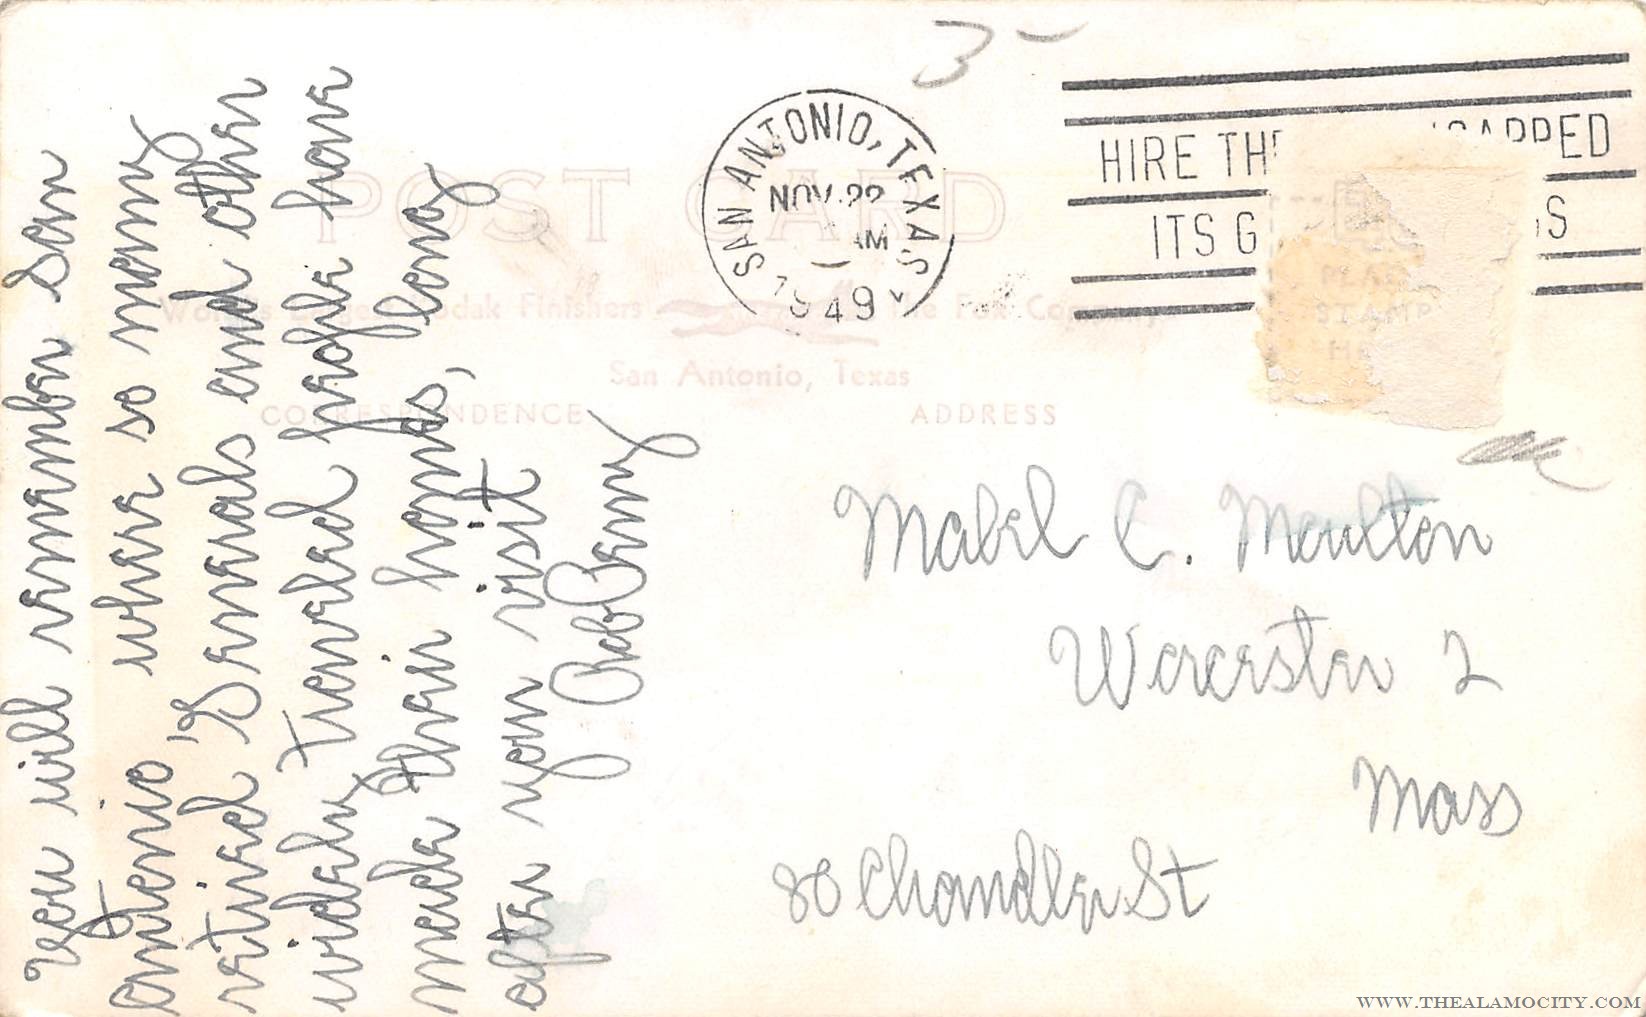 You will remember San
Antonio, where so many
retired "Generals and other
widely Traveled people have
made their homes, long
after you visit
Bob Beny
3-
SAN ANTONIO, TEXAS
NOV 22
AM
1949
HIRE THE HANDICAPPED
ITS G S
POST CARD
World's Largest Kodak Finishers The Fox Company
San Antonio, Texas
CORRESPONDENCE
ADDRESS
PLACE
STAMP
HERE
Mabel C. Moulton
Worcester 2
Mass
80 Chandler St
WWW.THEALAMOCITY.COM